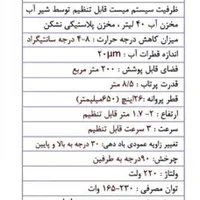 ظرفیت سیستم میست قابل تنظیم توسط شیر آب
مخزن آب ۴۰ لیتر ، مخزن پلاستیکی نشکن
میزان کاهش درجه حرارت : ۸-۴ درجه سانتیگراد
اندازه قطرات آب : ۲۰µm
فضای قابل پوشش : ۲۰۰ متر مربع
قدرت پرتاب : ۸/۵ متر
قطر پروانه :۲۶اینچ (۶۵۰میلیمتر)
ارتفاع : ۲-۱.۷ متر قابل تنظیم
سرعت : ۳ سرعت قابل تنظیم
تغییر زاویه عمودی باد دهی: ۳۰ درجه به بالا و پایین
چرخش:۹۰درجه به طرفین
ولتاژ : ۲۲۰ ولت
توان مصرفی : ۲۳۰-۱۶۵ وات